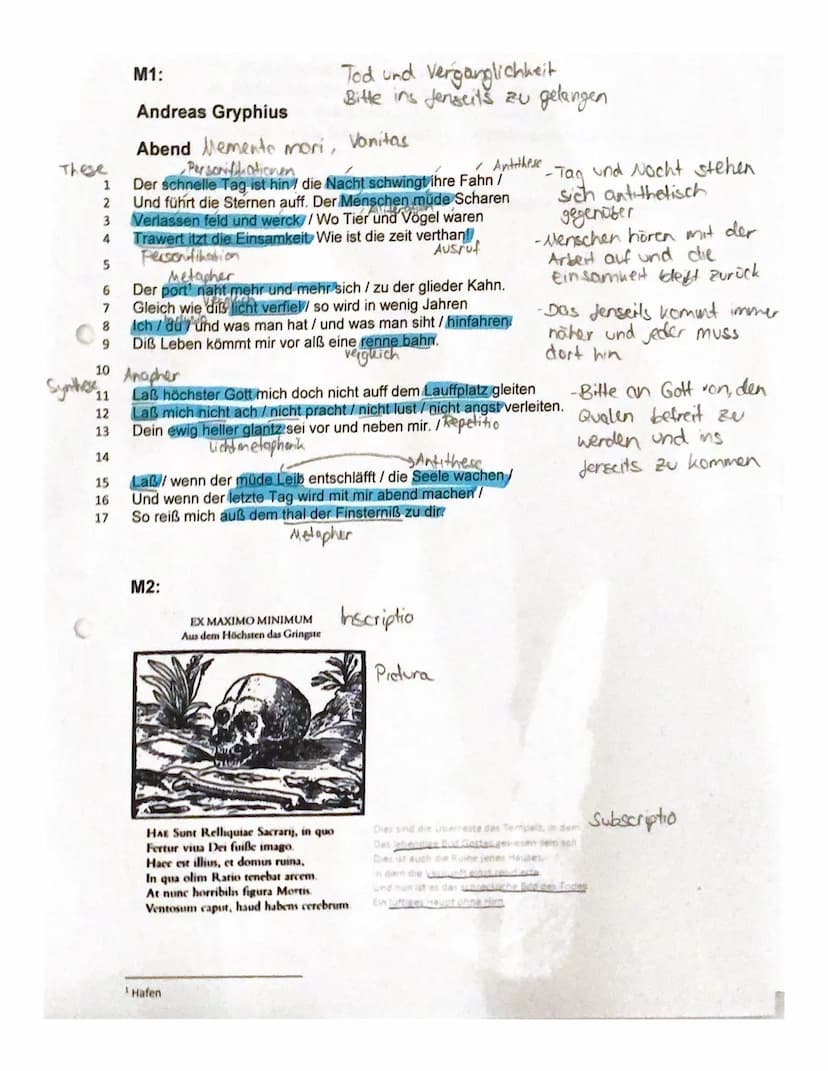 M1:
Tod und Vergänglichkeit
Bitte ins Jenseits zu gelangen
Andreas Gryphius
Abend Memento mori, Vanitas
These
Personifikationen
Antithese
1 Der schnelle Tag ist hin / die Nacht schwingt ihre Fahn /
2 Und führt die Sternen auff. Der Menschen müde Scharen
Alliteration
3 Verlassen feld und werck / Wo Tier und Vögel waren
4 Trawert itzt die Einsamkeit. Wie ist die zeit verthan!
Ausruf
5 Personifikation
Metapher
6 Der port¹ naht mehr und mehr sich / zu der glieder Kahn.
Vergleich
7 Gleich wie diß licht verfiel / so wird in wenig Jahren
8 Ich / du / und was man hat / und was man siht / hinfahren.
9 Diß Leben kömmt mir vor alß eine renne bahn.
Vergleich
10 Anapher
Synthese
11 Laß höchster Gott mich doch nicht auff dem Lauffplatz gleiten
12 Laß mich nicht ach / nicht pracht / nicht lust / nicht angst verleiten.
13 Dein ewig heller glantz sei vor und neben mir. / Repetitio
Lichtmetaphorik
14
Antithese
15 Laß / wenn der müde Leib entschläfft / die Seele wachen /
16 Und wenn der letzte Tag wird mit mir abend machen /
17 So reiß mich auß dem thal der Finsterniß zu dir.
Metapher
- Tag und Nacht stehen
sich antithetisch
gegenüber
- Menschen hören mit der
Arbeit auf und die
Einsamkeit bleibt zurück
- Das Jenseits kommt immer
näher und jeder muss
dort hin
- Bitte an Gott von den
Qualen befreit zu
werden und ins
Jenseits zu kommen
M2:
EX MAXIMO MINIMUM
Aus dem Höchsten das Gringste
Inscriptio
Pictura
HAE Sunt Relliquiae Sacrarij, in quo
Fertur viua Dei fuiße imago.
Haec est illius, et domus ruina,
In qua olim Ratio tenebat arcem.
At nunc horribilis figura Mortis.
Ventosum caput, haud habens cerebrum.
Subscriptio
Dies sind die Überreste des Tempels, in dem
Das lebendige Bild Gottes gewesen sein soll
Dies ist auch die Ruine jenes Hauses,
in dem die Vernunft einst residierte
und nun ist es das schreckliche Bild des Todes
Ein luftiges Haupt ohne Hirn
¹ Hafen